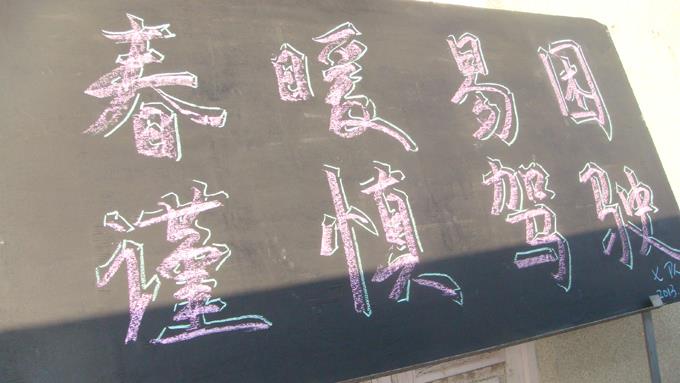 春暖易困
谨慎驾驶
2013